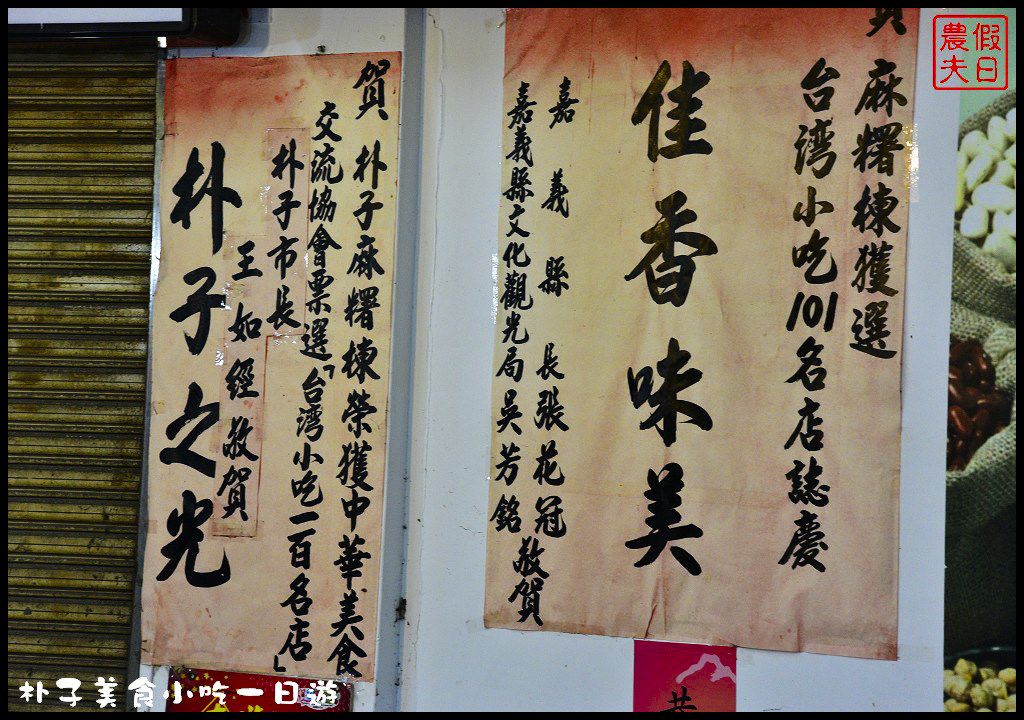 賀 麻糬棟獲選
台湾小吃101名店誌慶
佳香味美
嘉義縣長張花冠
嘉義縣文化觀光局吳芳銘 敬賀
賀 朴子麻糬棟榮獲中華美食
交流協會票選「台湾小吃一百名店」
朴子市長
王如經敬賀
朴子之光
假日
農夫
朴子美食小吃一日遊